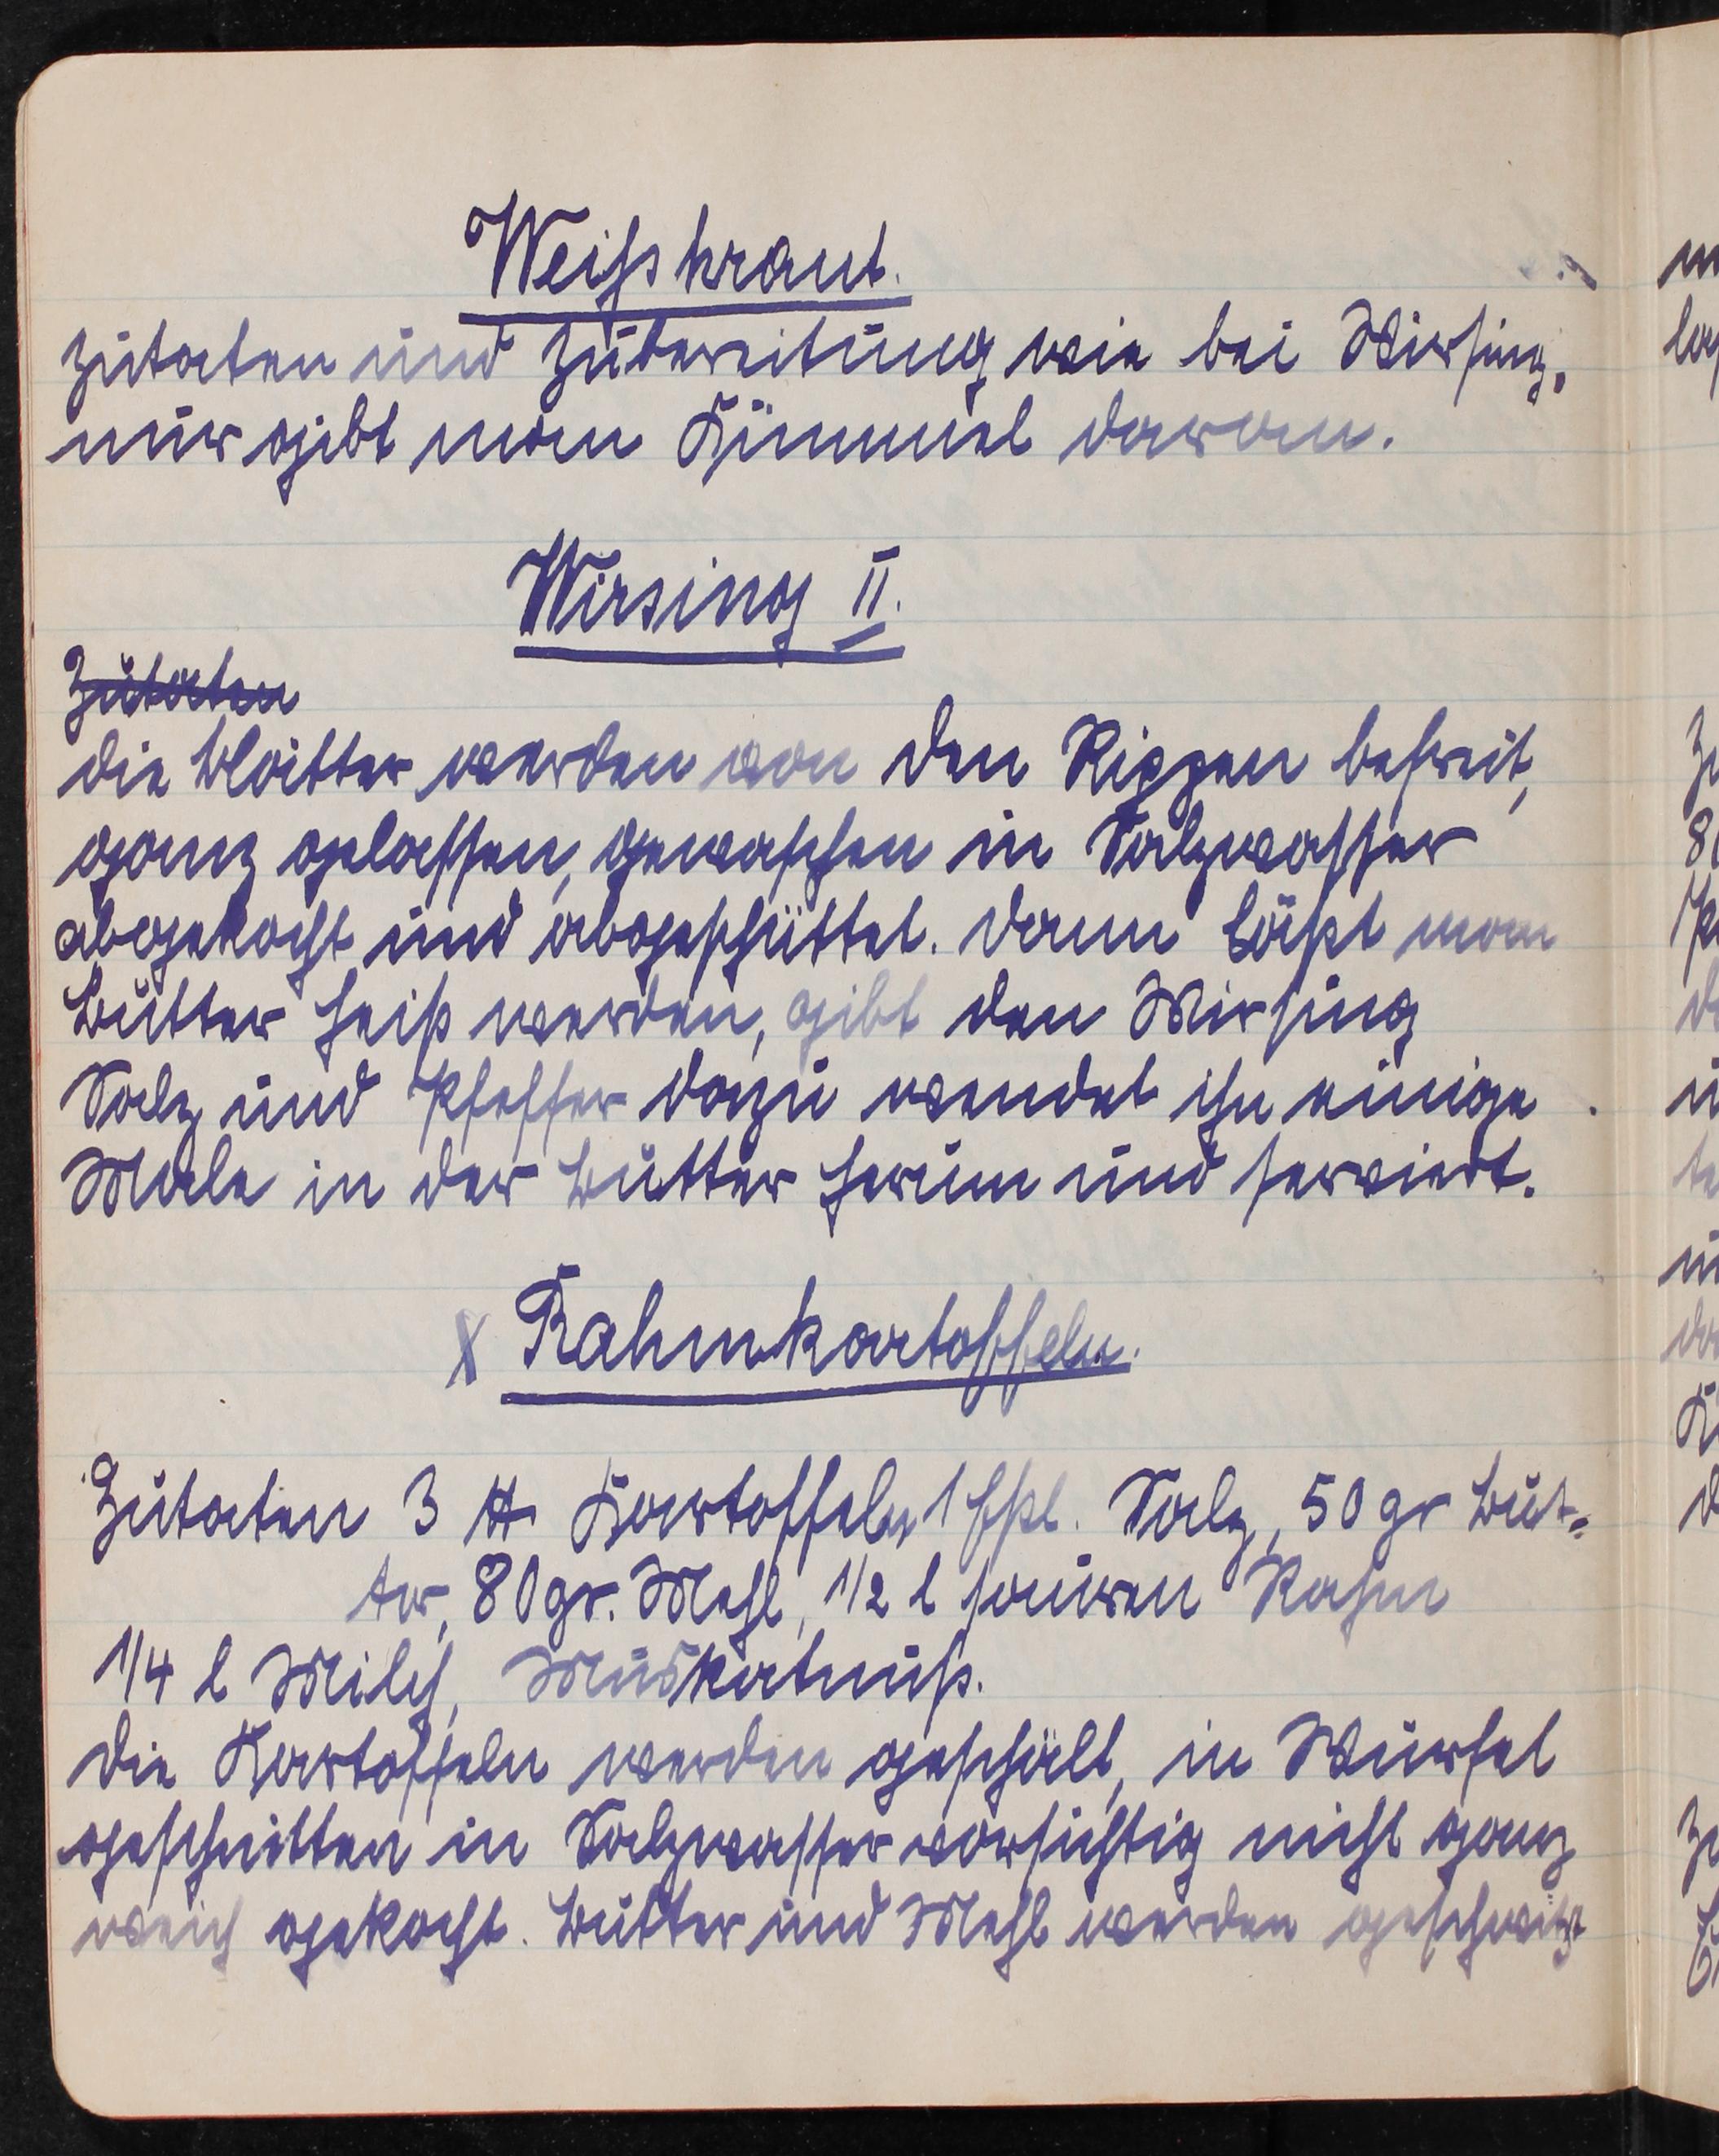 Weißkraut.
Zutaten und Zubereitung wie bei Wirsing,
nur gibt man Kümmel daran.
Wirsing II.
Zutaten
die Blätter werden von den Rippen befreit,
ganz gelassen, gewaschen in Salzwasser
abgekocht und abgeschüttet. Dann läßt man
Butter heiß werden, gibt den Wirsing
Salz und Pfeffer dazu wendet ihn einige
Male in der Butter herum und serviert.
X Rahmkartoffeln.
Zutaten 3 ℔ Kartoffeln 1 Eßl. Salz, 50 gr But-
ter, 80 gr. Mehl, 1/2 l sauren Rahm
1/4 l Milch, Muskatnuß.
Die Kartoffeln werden geschält, in Würfel
geschnitten in Salzwasser vorsichtig nicht ganz
weich gekocht. Butter und Mehl werden geschwitzt